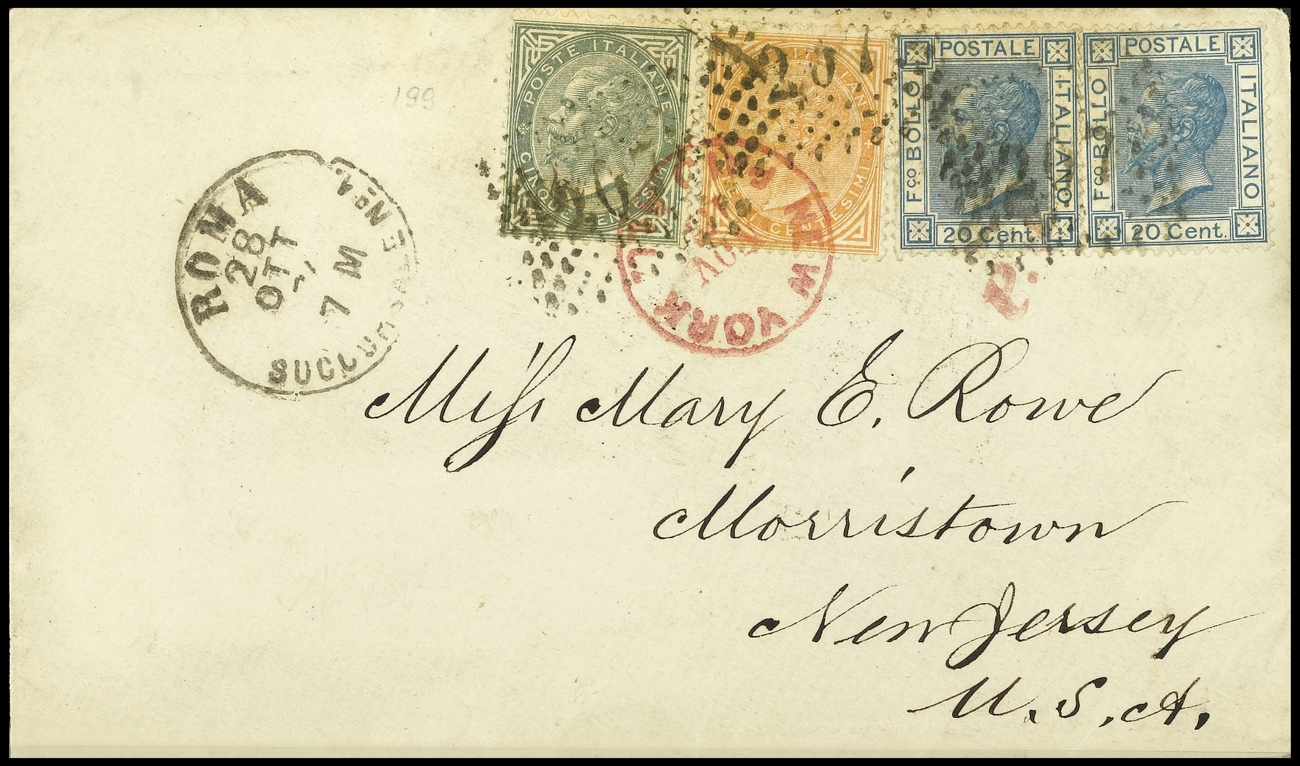 POSTE ITALIANE
CINQUE CENTESIMI
CENTESIMI
POSTALE
F.CO BOLLO
ITALIANO
20 Cent.
POSTALE
F.CO BOLLO
ITALIANO
20 Cent.
199
ROMA
28
OTT
7 M
NEW YORK
Miss Mary E. Rowe
Morristown
New Jersey
U. S. A.